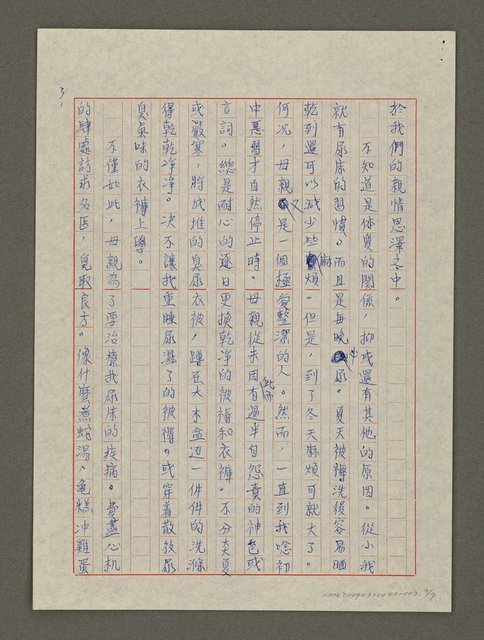 於我們的親情恩澤之中。
不知道是体質的關係,抑或還有其他的原因。從小我
就有尿床的習慣。而且是每晚必尿。夏天被褥洗後容易晒
乾到還可以減少些麻煩。但是,到了冬天麻煩可就大了。
何況,母親又是一個極愛整潔的人。然而,一直到我唸初
中惡習才自然停止時。母親從未因此而有過半句怨責的神色或
言詞。總是耐心的逐日更換乾净的被褥和衣褲。不分炎夏
或嚴寒,將成堆的臭尿衣被,蹲在大木盆边一件件的洗滌
得乾乾净净。决不讓我重睡尿濕了的被褥。或穿着散發尿
臭氣味的衣褲上學。
不僅如此,母親為了要治療我尿床的疾病。費盡心机
的肆處訪求名医,覓取良方。像什麼煮蛇湯、龟糕冲雞蛋
3、